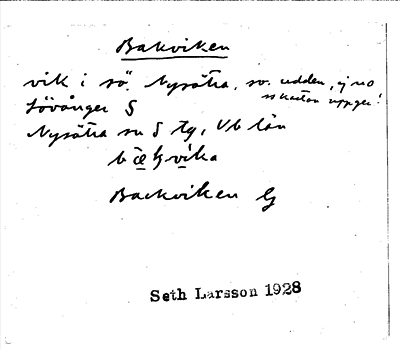 Bakviken
vik i sö. Nysätra, sv. udden, ej no
som kartan uppger!
Lövånger S
Nysätra sn S tg, Vb län
vika
Backviken G
Seth Larsson 1928